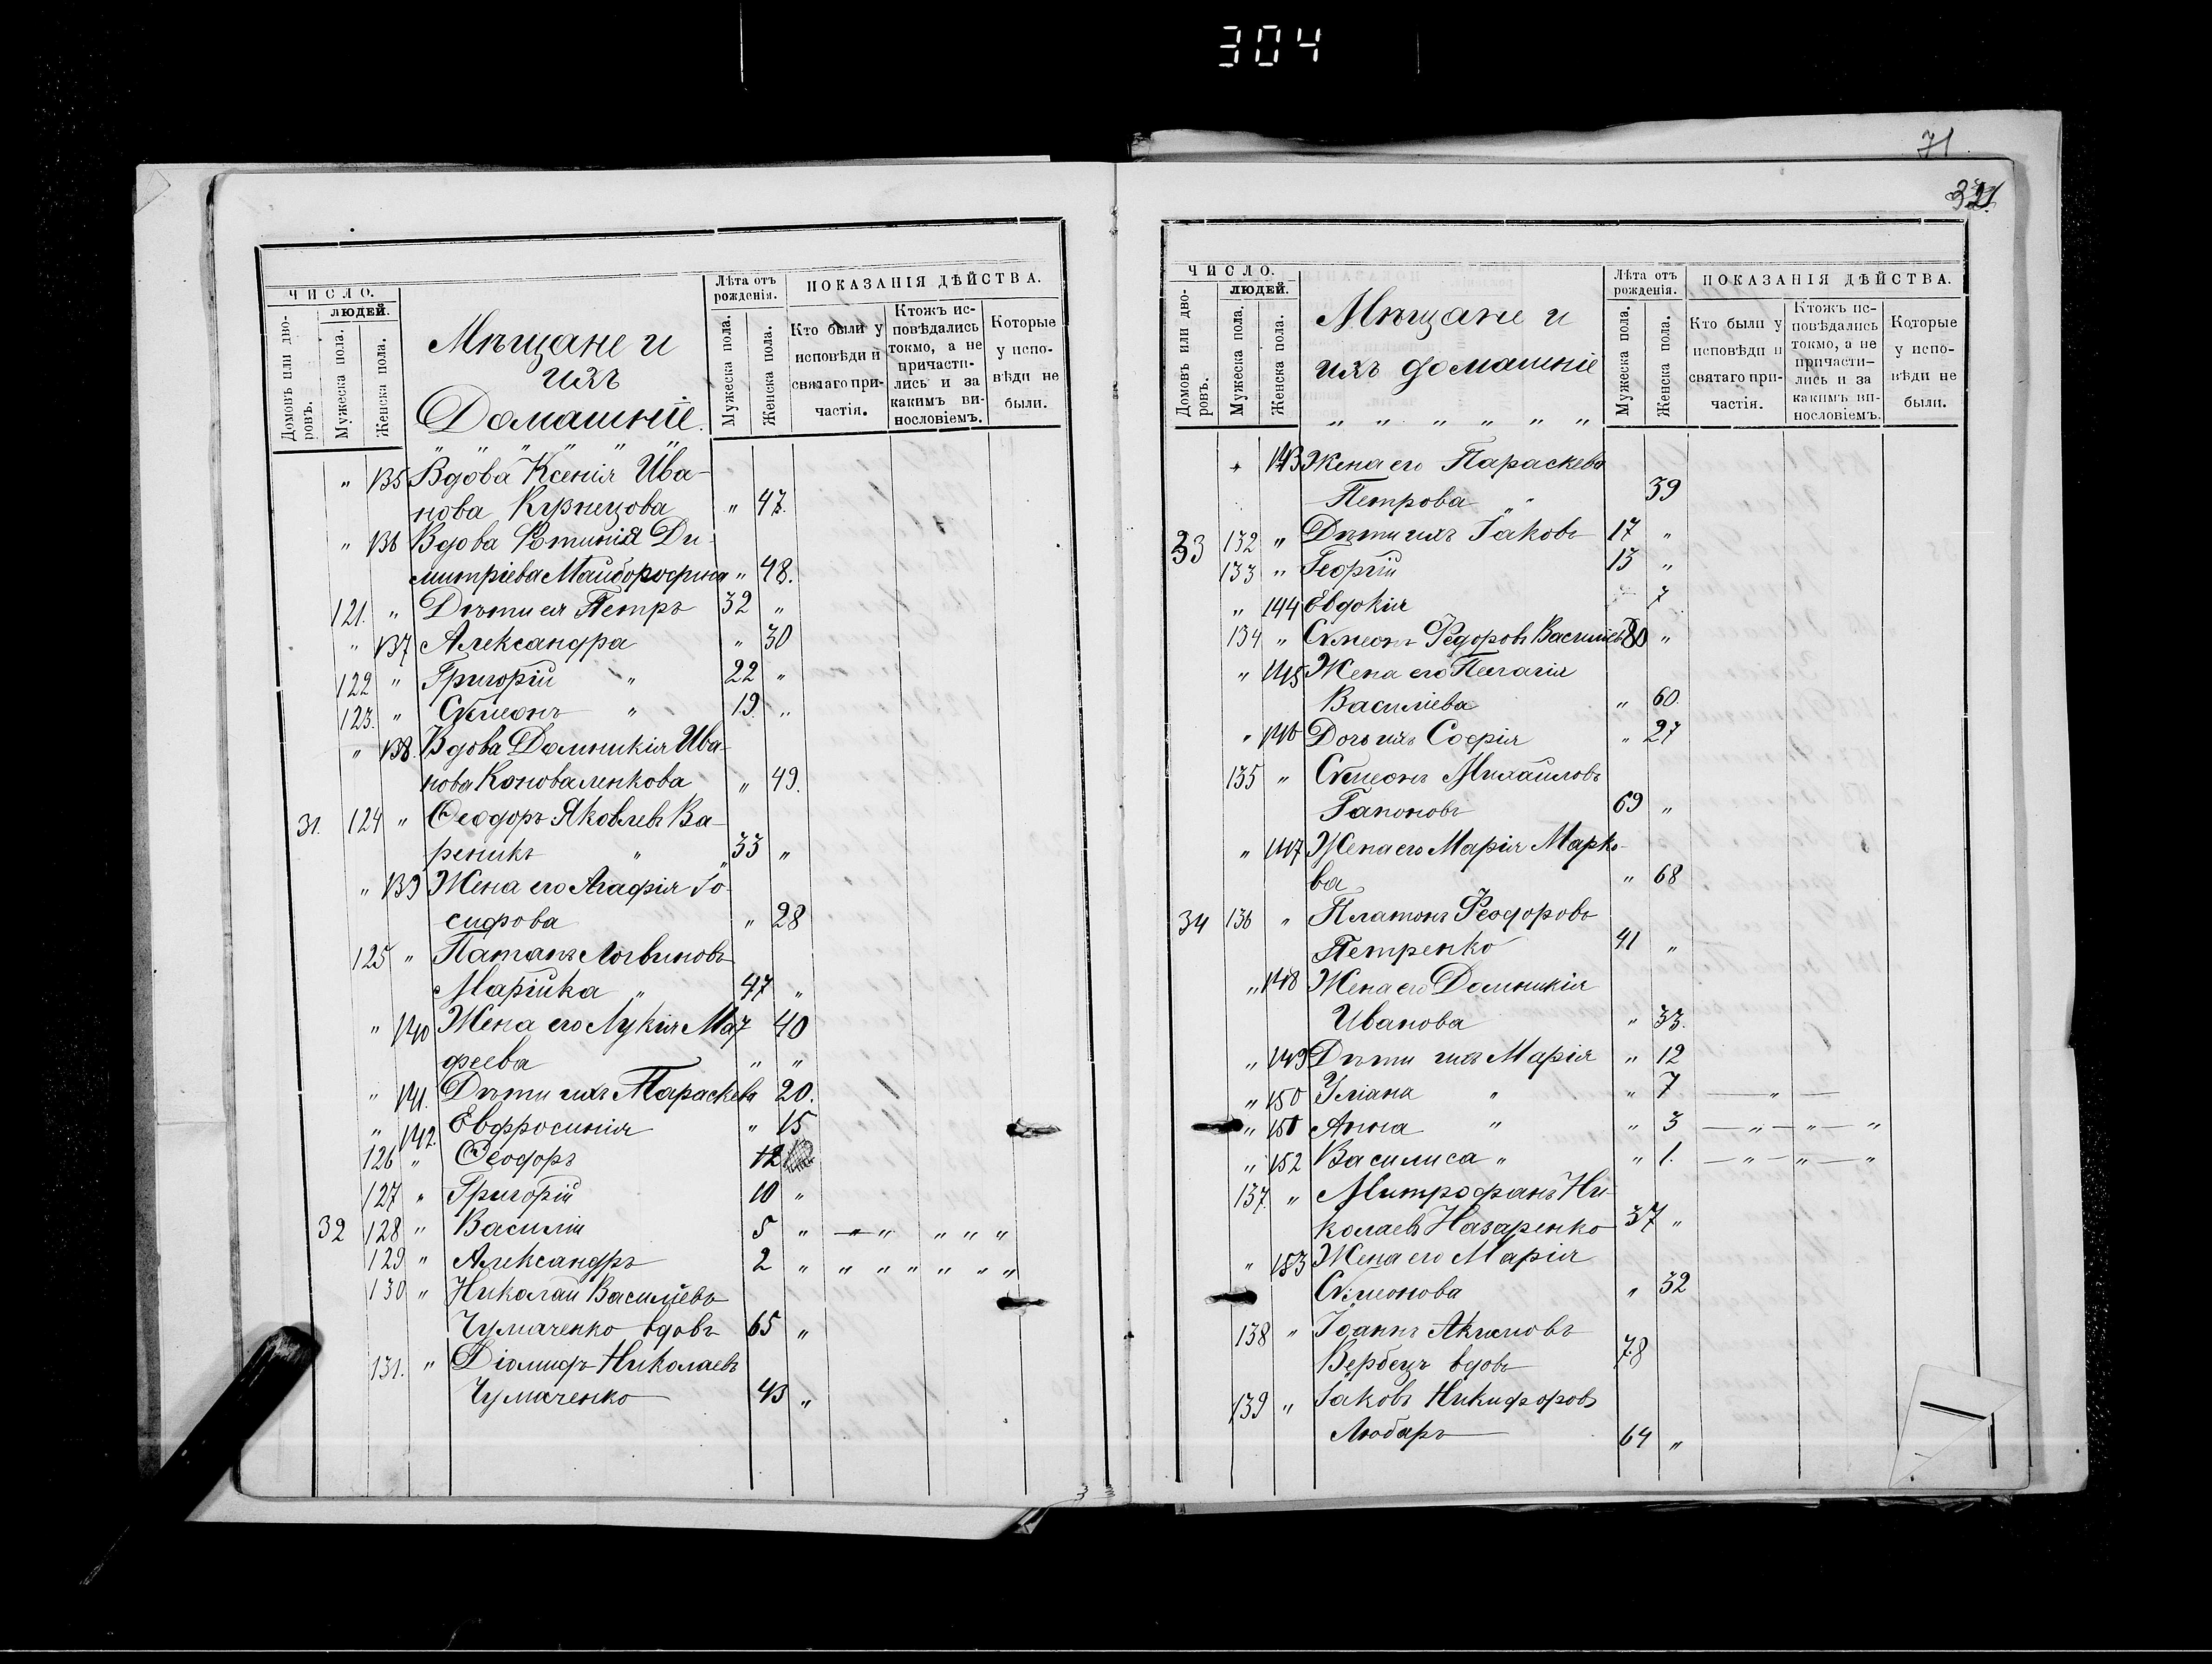 304
71
ЧИСЛО.
Домовъ или дворовъ.
ЛЮДЕЙ.
Мужеска пола.
Женска пола.
Мѣщане и
ихъ
Домашніе.
Лѣта отъ рожденія.
Мужеска пола.
Женска пола.
ПОКАЗАНІЯ ДѢЙСТВА.
Кто были у исповѣди и святаго причастія.
Ктожъ исповѣдались токмо, а не причастились и за какимъ винословіемъ.
Которые у исповѣди не были.
" 135 Вдова Ксенія Ива-
нова Кузнецова " 47.
" 136 Вдова Фотинія Ди-
митріева Майбородина " 48.
121. " Дѣти ея Петръ 32 "
" 137 Александра " 30
122 " Григорій " 22 "
123. " Сѵмеонъ " 19. "
" 138. Вдова Домникія Ива-
нова Коноваленкова " 49.
31. 124 " Ѳеодоръ Яковлевъ Ва-
реникъ " 33 "
" 139 Жена его Агафія Іо-
сифова " 28
125 " Патапъ Логвиновъ
Марійка " 47 "
" 140 Жена его Лукія Маѳ 40
феева " "
" 141. Дѣти ихъ Параскева 20.
" 142. Евфросинія " 15
126 " Ѳеодоръ 12
127 " Григорій 10 "
32 128 " Василій 5 " — " " " "
129 " Александръ 2 " " " " " " "
130 " Николай Васильевъ
Чумаченко вдовъ 65 "
131. " Діомидъ Николаевъ
Чумаченко 43 "
ЧИСЛО.
Домовъ или дворовъ.
ЛЮДЕЙ.
Мужеска пола.
Женска пола.
Мѣщане и
ихъ домашніе
" " " " " "
Лѣта отъ рожденія.
Мужеска пола.
Женска пола.
ПОКАЗАНІЯ ДѢЙСТВА.
Кто были у исповѣди и святаго причастія.
Ктожъ исповѣдались токмо, а не причастились и за какимъ винословіемъ.
Которые у исповѣди не были.
" 143 Жена его Параскева
Петрова " 39
33 132 " Дѣти ихъ Іаковъ 17 "
133 " Георгій 13 "
" 144 Евдокія 7
134 " Сѵмеонъ Федоровъ Василіевъ 80 "
" 145 Жена его Пелагія
Василіева " 60.
" 146 Дочь ихъ Софія " 27
135 " Сѵмеонъ Михайловъ
Гапоновъ 69 "
" 147 Жена его Марія Марко-
ва " 68
34 136 " Платонъ Ѳеодоровъ
Петренко 41 "
" 148 Жена его Домникія
Иванова " 33.
" 149 Дѣти ихъ Марія " 12
" 150 Уліана " " 7 — " —
" 151 Анна " " 3 — " — " — "
" 152 Василиса " " 1. — " — " — "
137. " Митрофанъ Ни-
колаевъ Назаренко 37 "
" 153 Жена его Марія
Сѵмеонова " 32
138 " Іоаннъ Акимовъ
Вербецъ вдовъ 78
139 " Іаковъ Никифоровъ
Любаръ 64 "